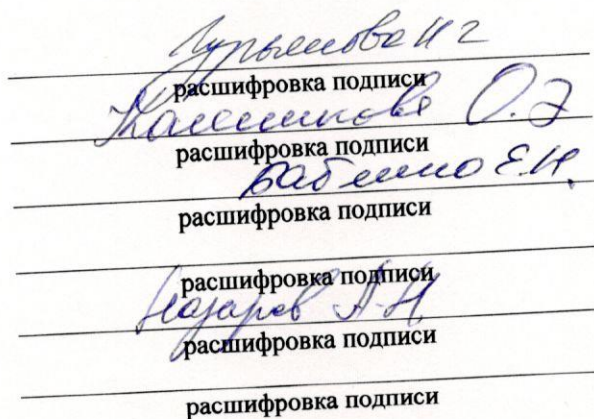 Гурьянова И Г
расшифровка подписи
О.Э
расшифровка подписи
Бабенко Е.Н.
расшифровка подписи
расшифровка подписи
Назаров А.Н
расшифровка подписи
расшифровка подписи